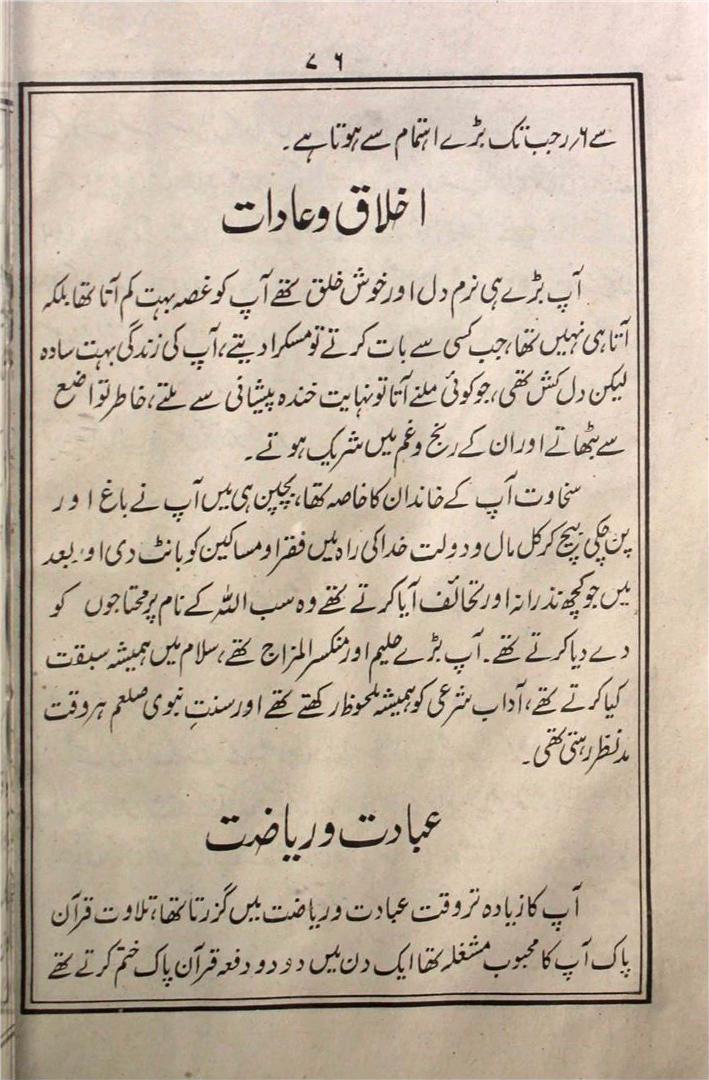 ۷۶
سے ۶؍رجب تک بڑے اہتمام سے ہوتا ہے۔
اخلاق و عادات
آپ بڑے ہی نرم دل اور خوش خلق تھے آپ کو غصہ بہت کم آتا تھا بلکہ
آتا ہی نہیں تھا، جب کسی سے بات کرتے تو مسکرا دیتے، آپ کی زندگی بہت سادہ
لیکن دل کش تھی، جو کوئی ملنے آتا تو نہایت خندہ پیشانی سے ملتے، خاطر تواضع
سے بٹھاتے اور ان کے رنج و غم میں شریک ہوتے۔
سخاوت آپ کے خاندان کا خاصہ تھا، بچپن ہی میں آپ نے باغ اور
پن چکی بیچ کر کل مال و دولت خدا کی راہ میں فقرا و مساکین کو بانٹ دی اور بعد
میں جو کچھ نذرانہ اور تحائف آیا کرتے تھے وہ سب اللہ کے نام پر محتاجوں کو
دے دیا کرتے تھے۔ آپ بڑے حلیم اور منکسر المزاج تھے، سلام میں ہمیشہ سبقت
کیا کرتے تھے، آداب شرعی کو ہمیشہ ملحوظ رکھتے تھے اور سنتِ نبوی صلعم ہر وقت
مدنظر رہتی تھی۔
عبادت و ریاضت
آپ کا زیادہ تر وقت عبادت و ریاضت میں گزرتا تھا، تلاوت قرآن
پاک آپ کا محبوب مشغلہ تھا ایک دن میں دو دو دفعہ قرآن پاک ختم کرتے تھے